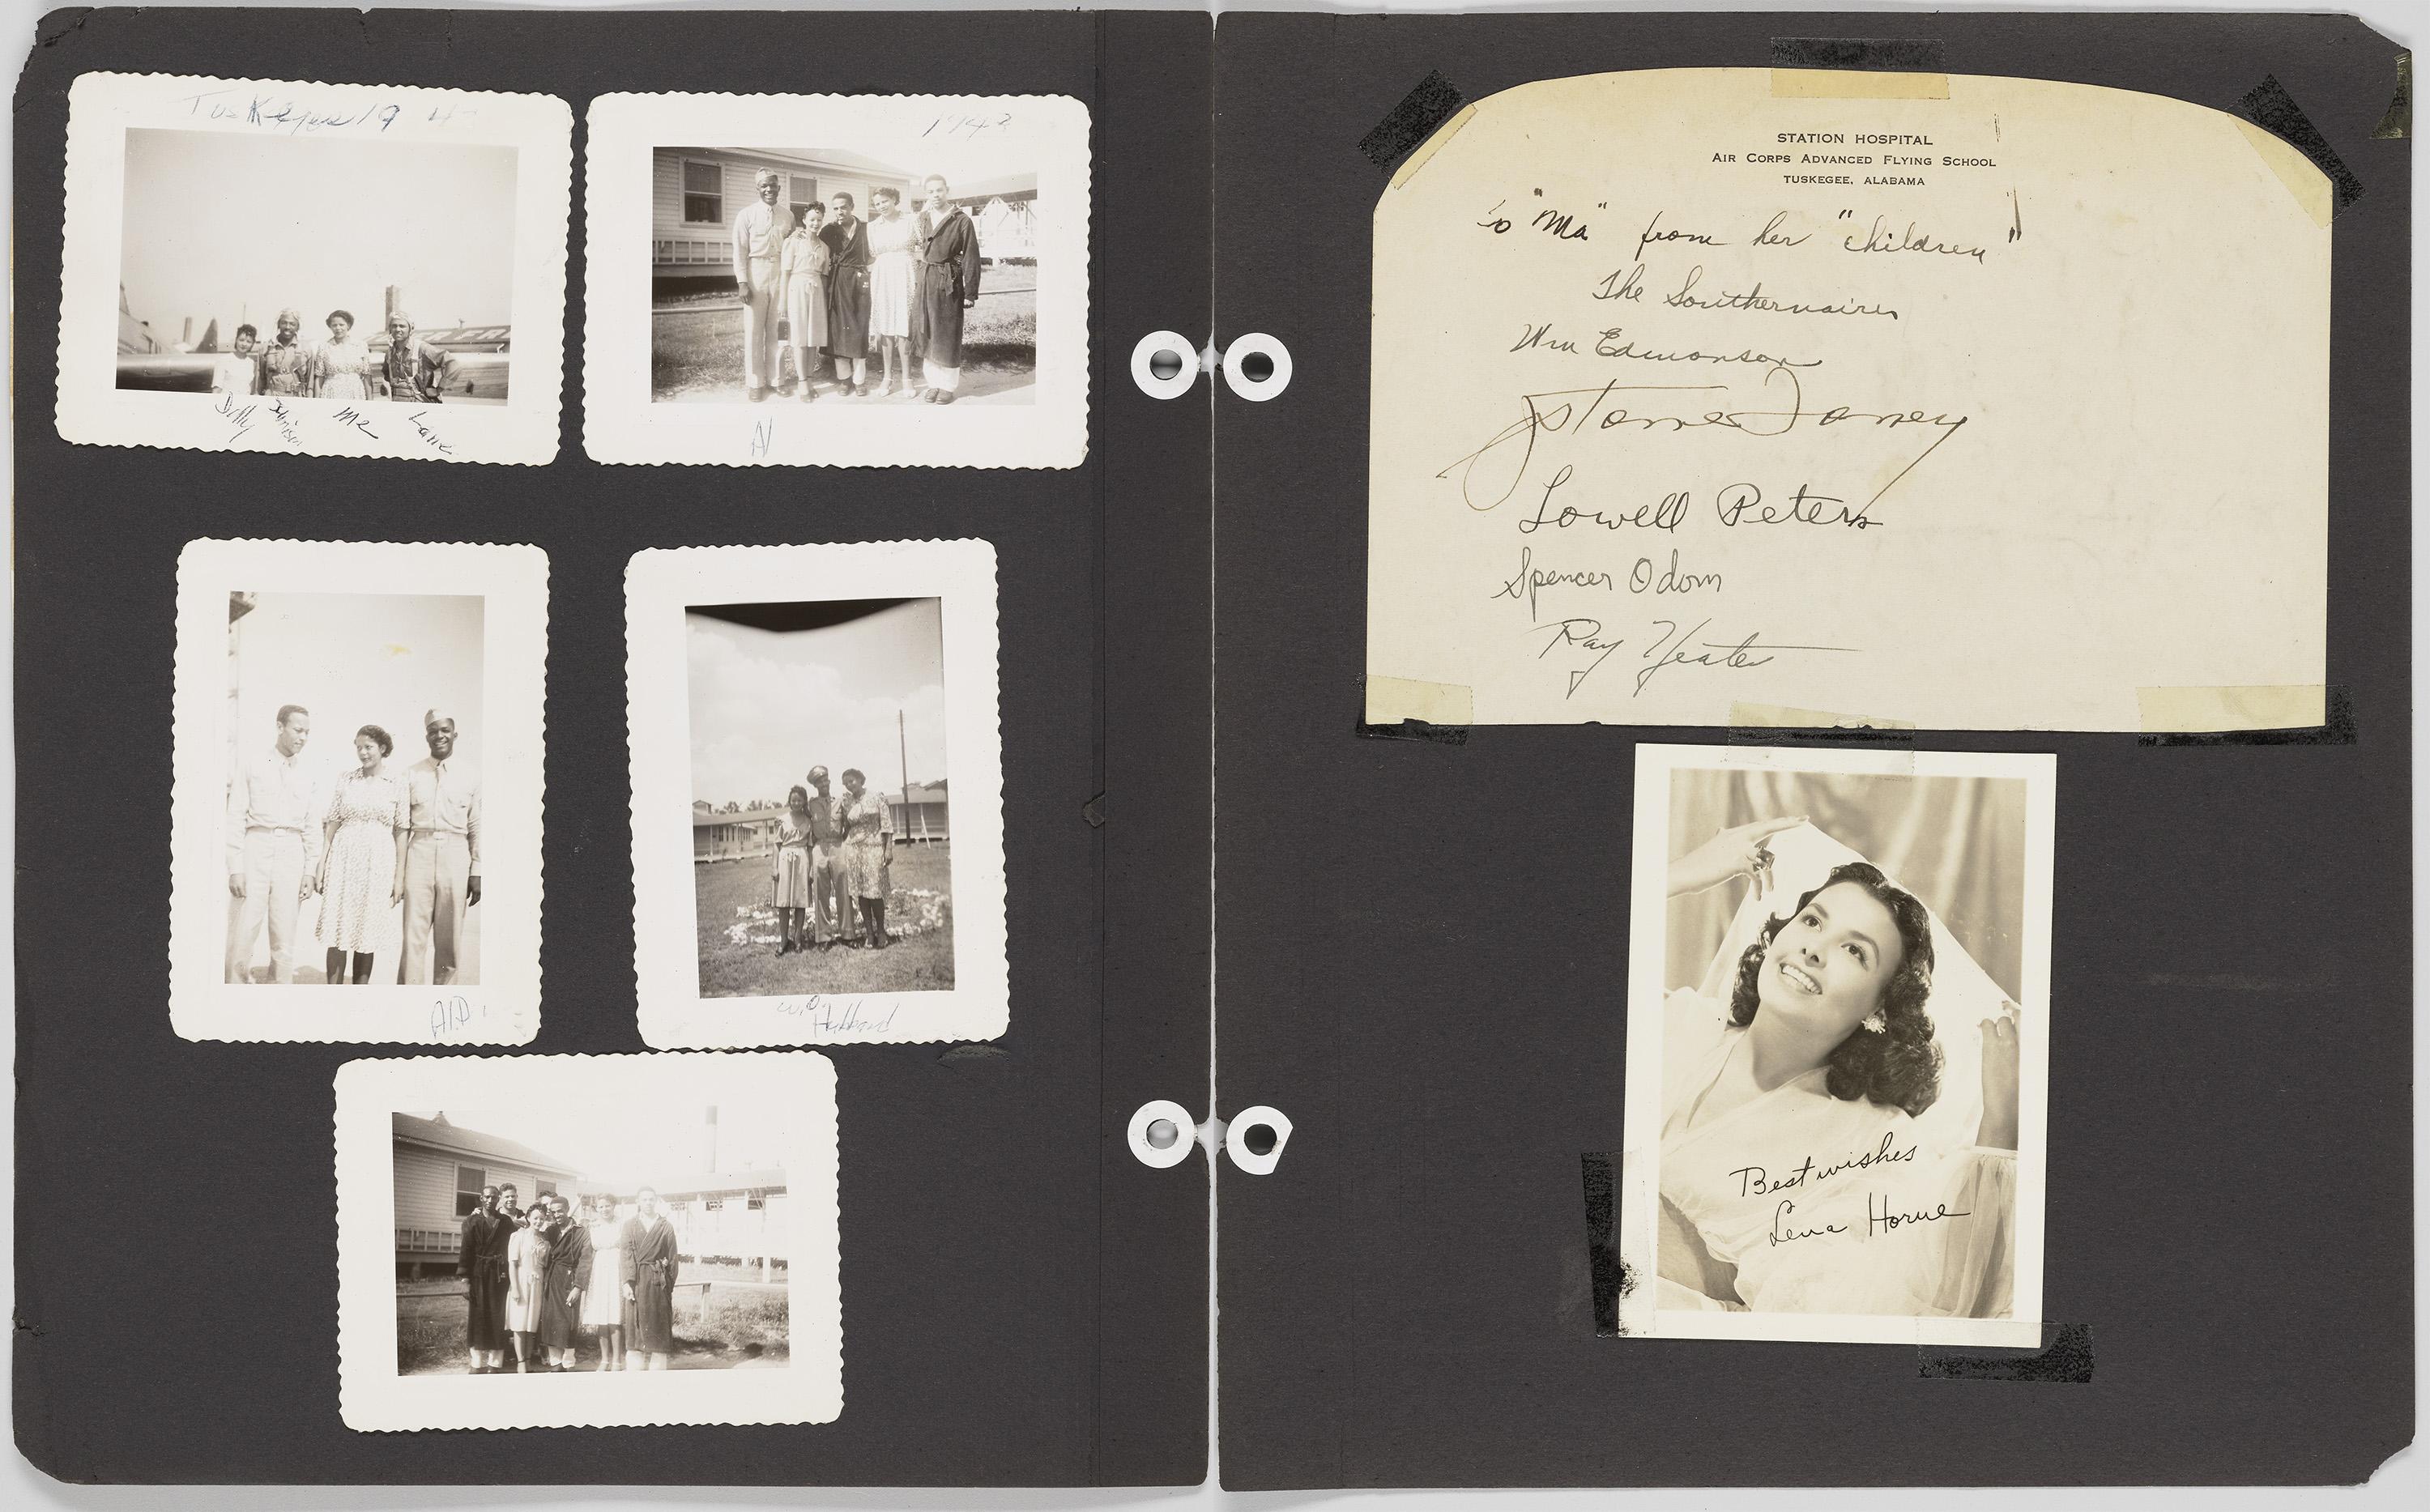 Tuskegee 19 43
Dolly
Me
Lane
1943
Al
Al.D
W.O.
STATION HOSPITAL
AIR CORPS ADVANCED FLYING SCHOOL
TUSKEGEE, ALABAMA
to "Ma" from her "children"
The Southernaires
Wm Edmonson
Jay Stone Toney
Lowell Peters
Spencer Odom
Ray Yeates
Best wishes
Lena Horne